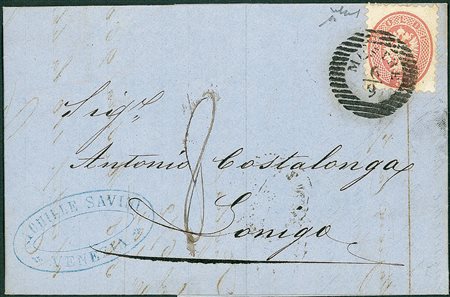 MESTRE
6/9
Sig.r
Antonio Costalonga
Lonigo
8
ACHILLE SAVI
VENEZIA